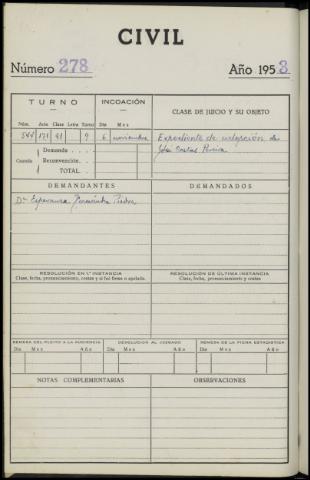 CIVIL
Número 278
Año 1953
TURNO
INCOACIÓN
CLASE DE JUICIO Y SU OBJETO
Núm. Acta Clase Letra Turno
Día Mes
9 6 noviembre
Expediente de
Demanda
Cuantía Reconvención
TOTAL
DEMANDANTES
DEMANDADOS
Dª Esperanza
RESOLUCIÓN EN 1ª INSTANCIA
Clase, fecha, pronunciamiento, costas y si fué firme o apelada.
RESOLUCIÓN DE ÚLTIMA INSTANCIA
Clase, fecha, pronunciamiento y costas
REMESA DEL PLEITO A LA AUDIENCIA
DEVOLUCIÓN AL JUZGADO
REMESA DE LA FICHA ESTADÍSTICA
Día Mes Año
Día Mes Año
Día Mes Año
NOTAS COMPLEMENTARIAS
OBSERVACIONES